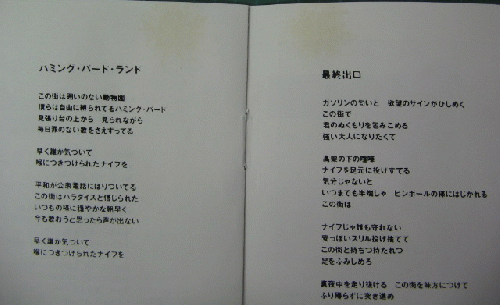 ハミング・バード・ランド
この街は囲いのない動物園
僕らは自由に縛られてるハミング・バード
見張り台の上から 見られながら
毎日罪のない歌をさえずってる
早く誰か気づいて
喉につきつけられたナイフを
平和が公衆電話にはりついてる
この街はパラダイスと信じられた
いつもの様に穏やかな朝早く
今も歌おうと思ったら声が出ない
早く誰か気づいて
喉につきつけられたナイフを
最終出口
ガソリンの匂いと 欲望のサインがひしめく
この街で
君のぬくもりを包みこめる
強い大人になりたくて
高架の下の喧嘩
ナイフを足元に投げすてる
気分じゃないと
いつまでも半端じゃ ピンボールの様にはじかれる
この街は
ナイフじゃ誰も守れない
安っぽいスリル投げ捨てて
この街と持ちつ持たれつ
足をふみしめろ
真夜中を走り抜ける この街を味方につけて
ふり帰らずに突き進め